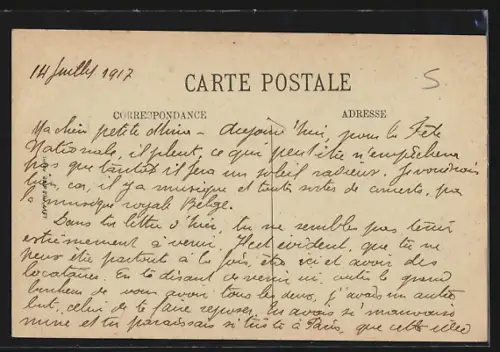 14 Juillet 1917
5
CARTE POSTALE
CORRESPONDANCE
ADRESSE
Ma chère petite — Aujourd'hui, pour la Fête
Nationale, il pleut, ce qui peut être n'empêchera
pas que tantôt il fera un soleil radieux. Je voudrais
bien, car, il y a musique et toutes sortes de concerts, par
la musique royale Belge.
Dans ta lettre d'hier, tu ne sembles pas tenir
extrêmement à venir. Il est évident, que tu ne
peux être partout à la fois, être ici et avoir des
locataires. En te disant de venir ici, outre le grand
bonheur de vous avoir tous les deux, j'avais un autre
but, celui de te faire reposer, tu avais si mauvaise
mine et tu paraissais si triste à Paris, que cette idée